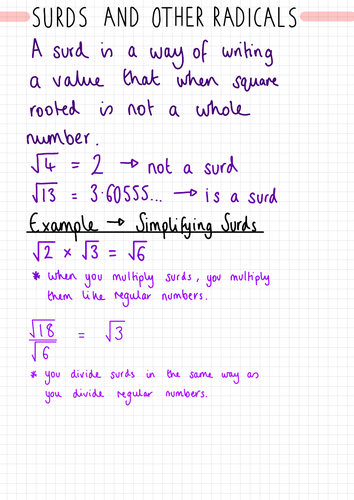 SURDS AND OTHER RADICALS
A surd is a way of writing
a value that when square
rooted is not a whole
number.
√4 = 2 → not a surd
√13 = 3·60555... → is a surd
Example → Simplifying Surds
√2 × √3 = √6
* when you multiply surds, you multiply
them like regular numbers.
√18/√6 = √3
* you divide surds in the same way as
you divide regular numbers.